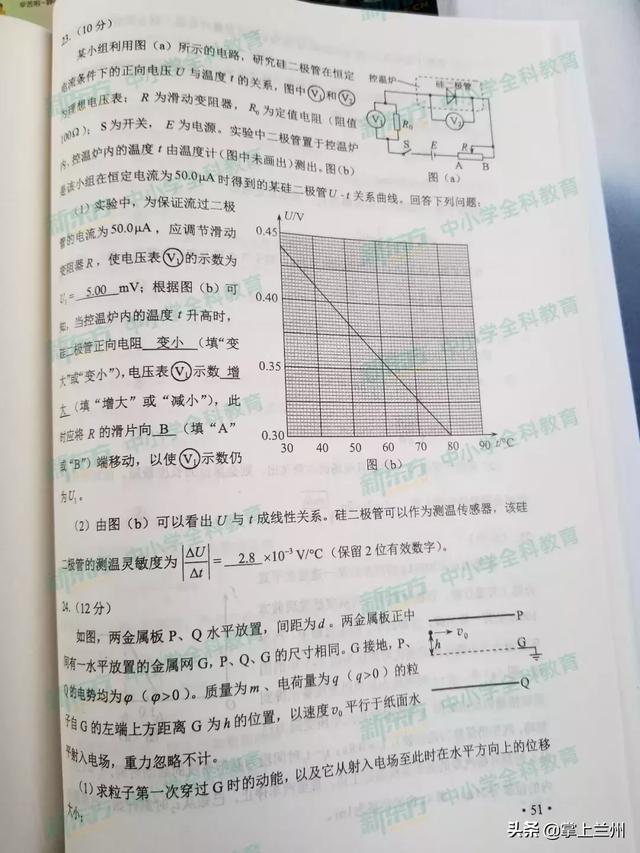 23.(10分)
某小组利用图(a)所示的电路，研究硅二极管在恒定
电流条件下的正向电压U与温度t的关系，图中V₁和V₂
为理想电压表；R为滑动变阻器，R₀为定值电阻(阻值
100Ω)；S为开关，E为电源。实验中二极管置于控温炉
内，控温炉内的温度t由温度计(图中未画出)测出。图(b)
是该小组在恒定电流为50.0μA时得到的某硅二极管U-t关系曲线。回答下列问题：
控温炉
硅二极管
V₁
R₀
V₂
S
E
R
A
B
图(a)
(1)实验中，为保证流过二极
管的电流为50.0μA，应调节滑动
变阻器R，使电压表V₁的示数为
U₁= 5.00 mV；根据图(b)可
知，当控温炉内的温度t升高时，
硅二极管正向电阻 变小 (填“变
大”或“变小”)，电压表V₁示数 增
大 (填“增大”或“减小”)，此
时应将R的滑片向 B (填“A”
或“B”)端移动，以使V₁示数仍
为U₁。
U/V
0.45
0.40
0.35
0.30
30 40 50 60 70 80 90 t/°C
图(b)
(2)由图(b)可以看出U与t成线性关系。硅二极管可以作为测温传感器，该硅
二极管的测温灵敏度为|ΔU/Δt|= 2.8 ×10⁻³V/°C(保留2位有效数字)。
24.(12分)
如图，两金属板P、Q水平放置，间距为d。两金属板正中
间有一水平放置的金属网G，P、Q、G的尺寸相同。G接地，P、
Q的电势均为φ(φ>0)。质量为m、电荷量为q(q>0)的粒
子自G的左端上方距离G为h的位置，以速度v₀平行于纸面水
平射入电场，重力忽略不计。
P
v₀
h
G
Q
(1)求粒子第一次穿过G时的动能，以及它从射入电场至此时在水平方向上的位移
大小；
·51·
头条@掌上兰州
新东方 中小学全科教育